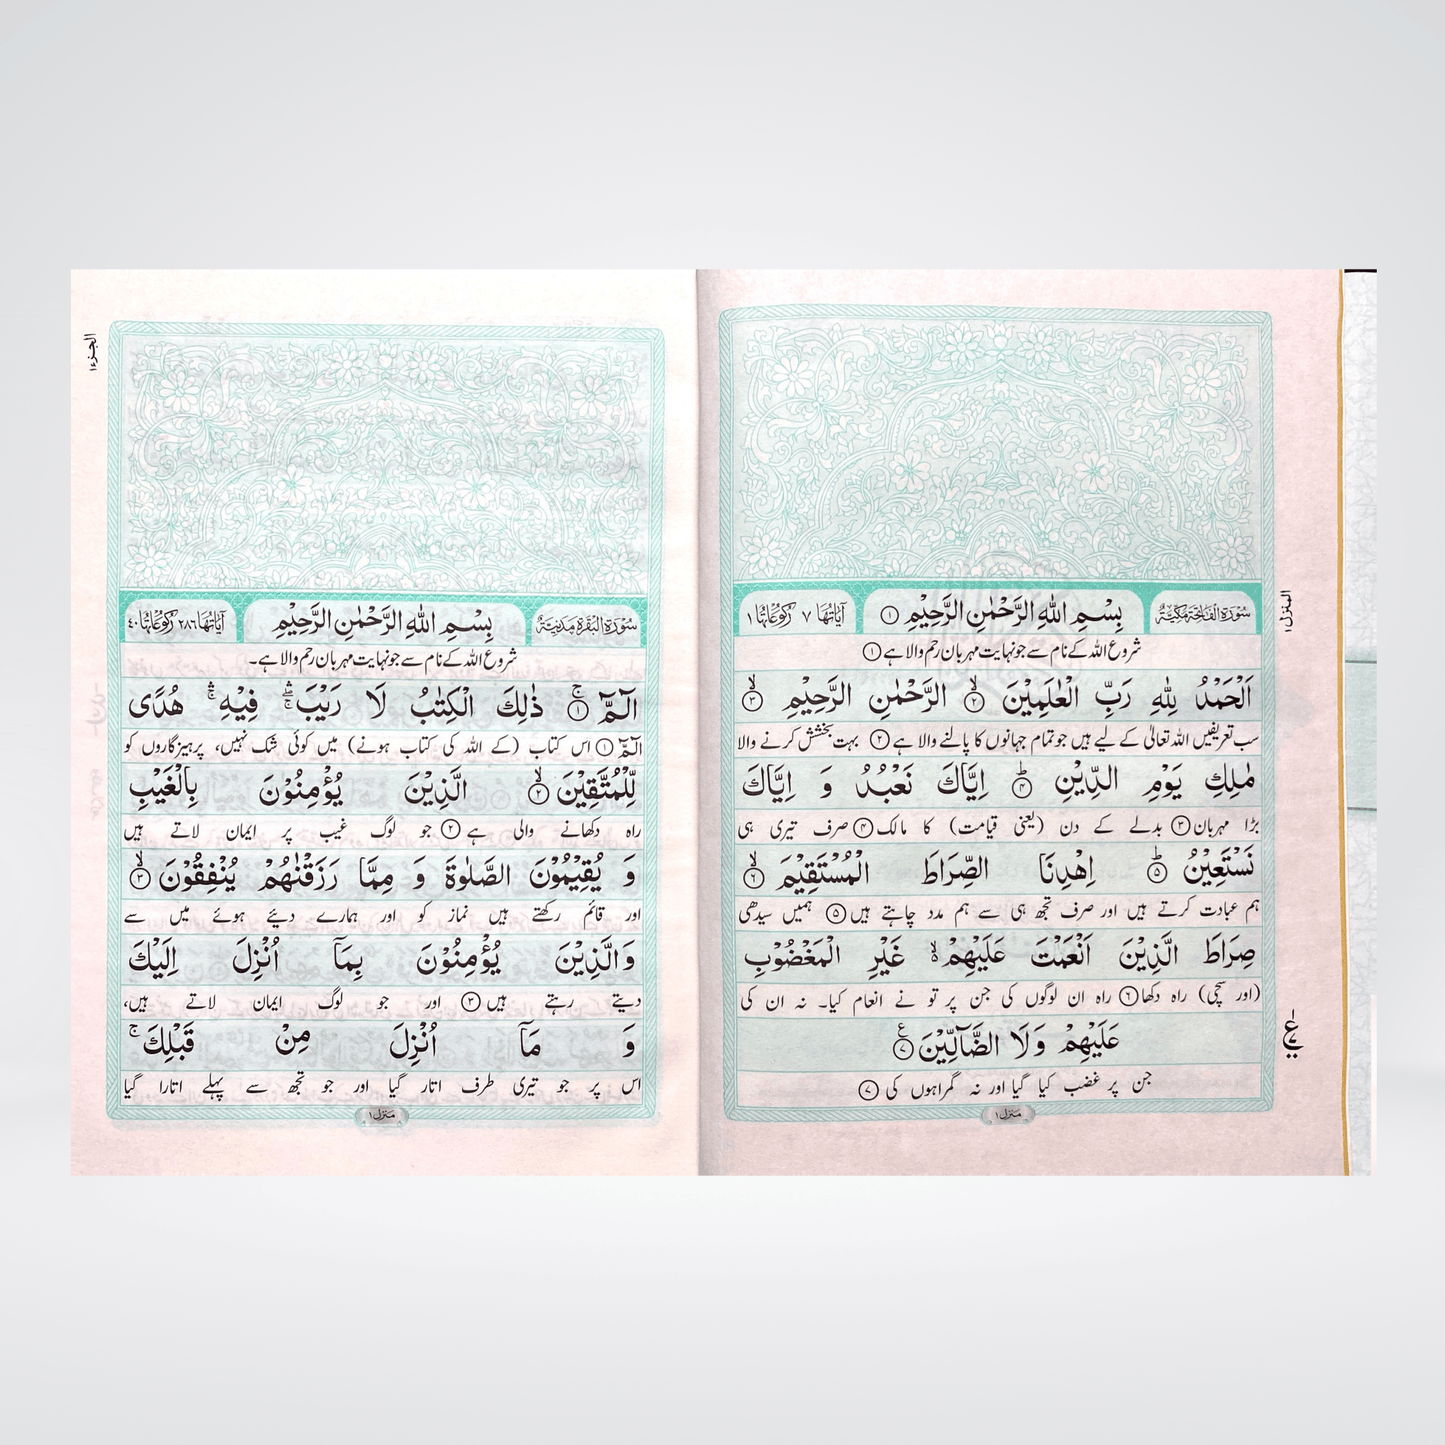 سُوْرَةُ الْفَاتِحَةِ مَكِّيَّةٌ
بِسْمِ اللّٰهِ الرَّحْمٰنِ الرَّحِيْمِ ۝۱
اٰيَاتُهَا ۷ رُكُوْعَاتُهَا ۱
شروع اللہ کے نام سے جو نہایت مہربان رحم والا ہے ۝۱
اَلْحَمْدُ لِلّٰهِ رَبِّ الْعٰلَمِيْنَ ۝۲ۙ الرَّحْمٰنِ الرَّحِيْمِ ۝۳ۙ
سب تعریفیں اللہ تعالیٰ کے لیے ہیں جو تمام جہانوں کا پالنے والا ہے ۝۲ بہت بخشش کرنے والا
مٰلِكِ يَوْمِ الدِّيْنِ ۝۴ؕ اِيَّاكَ نَعْبُدُ وَ اِيَّاكَ
بڑا مہربان ۝۳ بدلے کے دن (یعنی قیامت) کا مالک ۝۴ صرف تیری ہی
نَسْتَعِيْنُ ۝۵ؕ اِهْدِنَا الصِّرَاطَ الْمُسْتَقِيْمَ ۝۶ۙ
ہم عبادت کرتے ہیں اور صرف تجھ ہی سے ہم مدد چاہتے ہیں ۝۵ ہمیں سیدھی
صِرَاطَ الَّذِيْنَ اَنْعَمْتَ عَلَيْهِمْ ۙ۬ غَيْرِ الْمَغْضُوْبِ
(اور سچی) راہ دکھا ۝۶ راہ ان لوگوں کی جن پر تو نے انعام کیا۔ نہ ان کی
عَلَيْهِمْ وَلَا الضَّآلِّيْنَ ۝۷
جن پر غضب کیا گیا اور نہ گمراہوں کی ۝۷
منزل ۱
المنزل ۱
ع
الجزء ۱
سُوْرَةُ الْبَقَرَةِ مَدَنِيَّةٌ
بِسْمِ اللّٰهِ الرَّحْمٰنِ الرَّحِيْمِ
اٰيَاتُهَا ۲۸۶ رُكُوْعَاتُهَا ۴۰
شروع اللہ کے نام سے جو نہایت مہربان رحم والا ہے۔
الٓمّٓ ۝۱ۚ ذٰلِكَ الْكِتٰبُ لَا رَيْبَ ۛۖۚ فِيْهِ ۛۚ هُدًى
الٓمّٓ ۝۱ اس کتاب (کے اللہ کی کتاب ہونے) میں کوئی شک نہیں، پرہیزگاروں کو
لِّلْمُتَّقِيْنَ ۝۲ۙ الَّذِيْنَ يُؤْمِنُوْنَ بِالْغَيْبِ
راہ دکھانے والی ہے ۝۲ جو لوگ غیب پر ایمان لاتے ہیں
وَ يُقِيْمُوْنَ الصَّلٰوةَ وَ مِمَّا رَزَقْنٰهُمْ يُنْفِقُوْنَ ۝۳ۙ
اور قائم رکھتے ہیں نماز کو اور ہمارے دیئے ہوئے میں سے
وَالَّذِيْنَ يُؤْمِنُوْنَ بِمَآ اُنْزِلَ اِلَيْكَ
دیتے رہتے ہیں ۝۳ اور جو لوگ ایمان لاتے ہیں،
وَ مَآ اُنْزِلَ مِنْ قَبْلِكَ ۚ
اس پر جو تیری طرف اتارا گیا اور جو تجھ سے پہلے اتارا گیا
منزل ۱